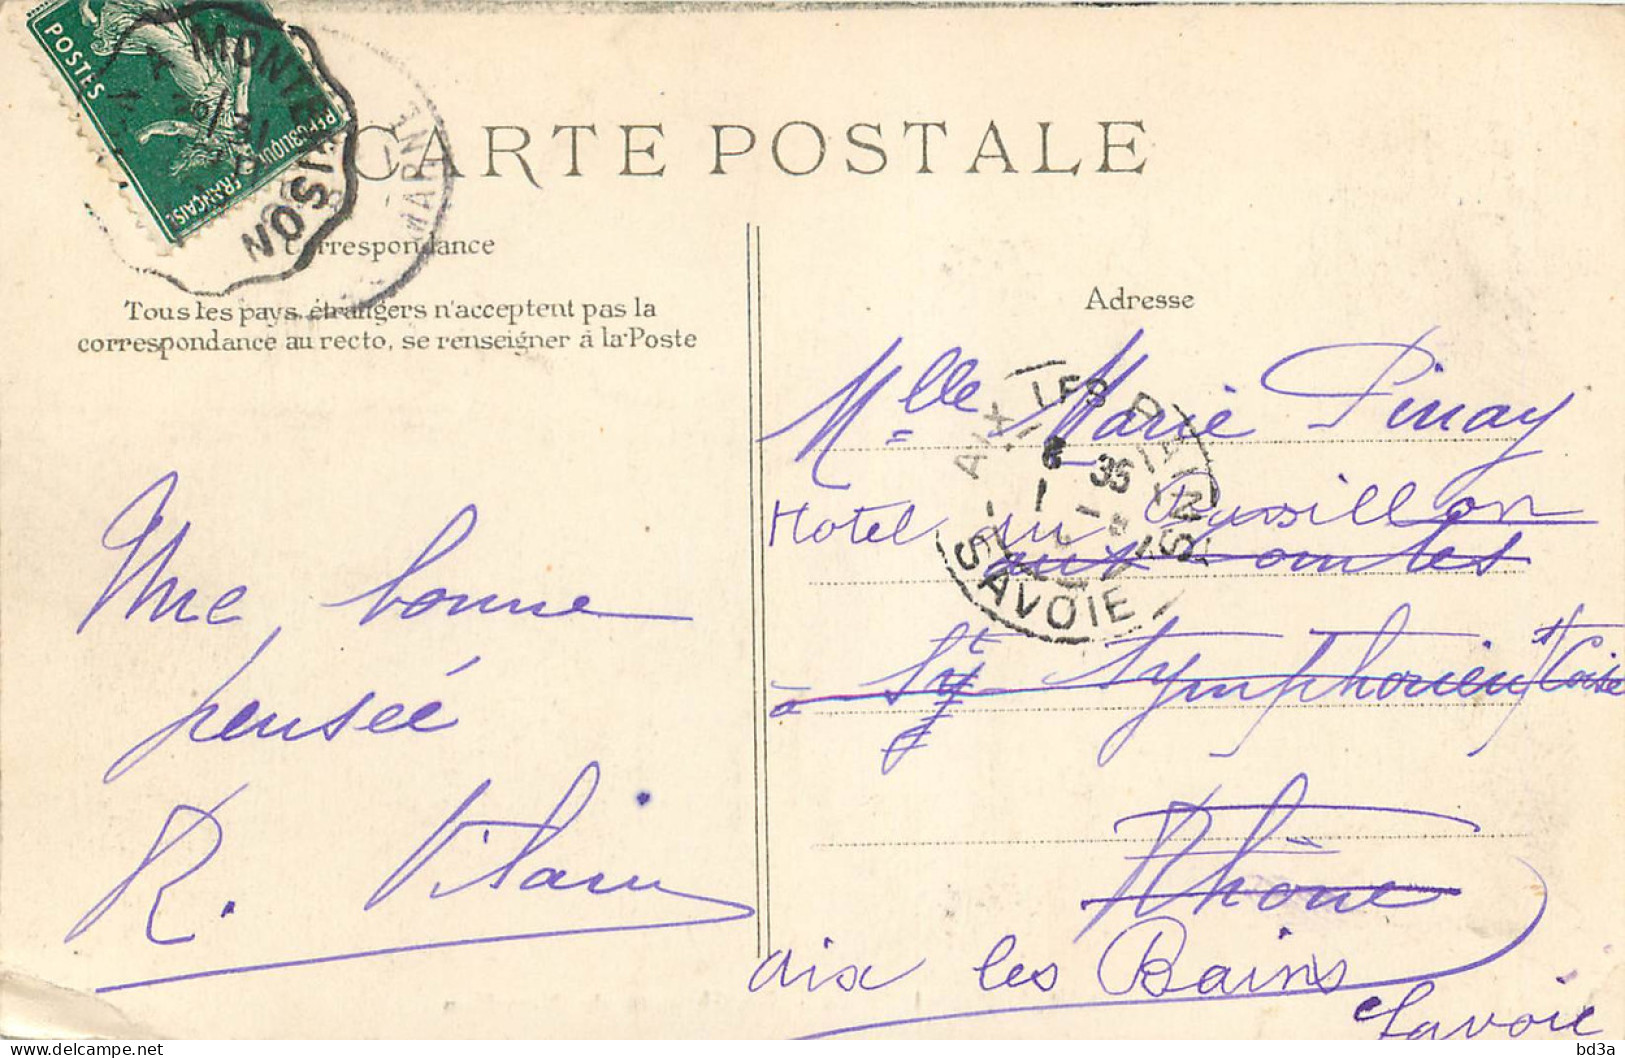 POSTES
RÉPUBLIQUE
FRANÇAISE
A MONTE
NOSIE
MARNE
CARTE POSTALE
Correspondance
Tous les pays étrangers n'acceptent pas la
correspondance au recto, se renseigner à la Poste
Adresse
AIX LES BAINS
8 35
SAVOIE
Mlle Marie Pinay
Hotel du Russillon
aux Comtes
à St Symphorien s/ Coise
Rhône
aix les Bains
Savoie
Une bonne
pensée
R. Vilain
bd3a